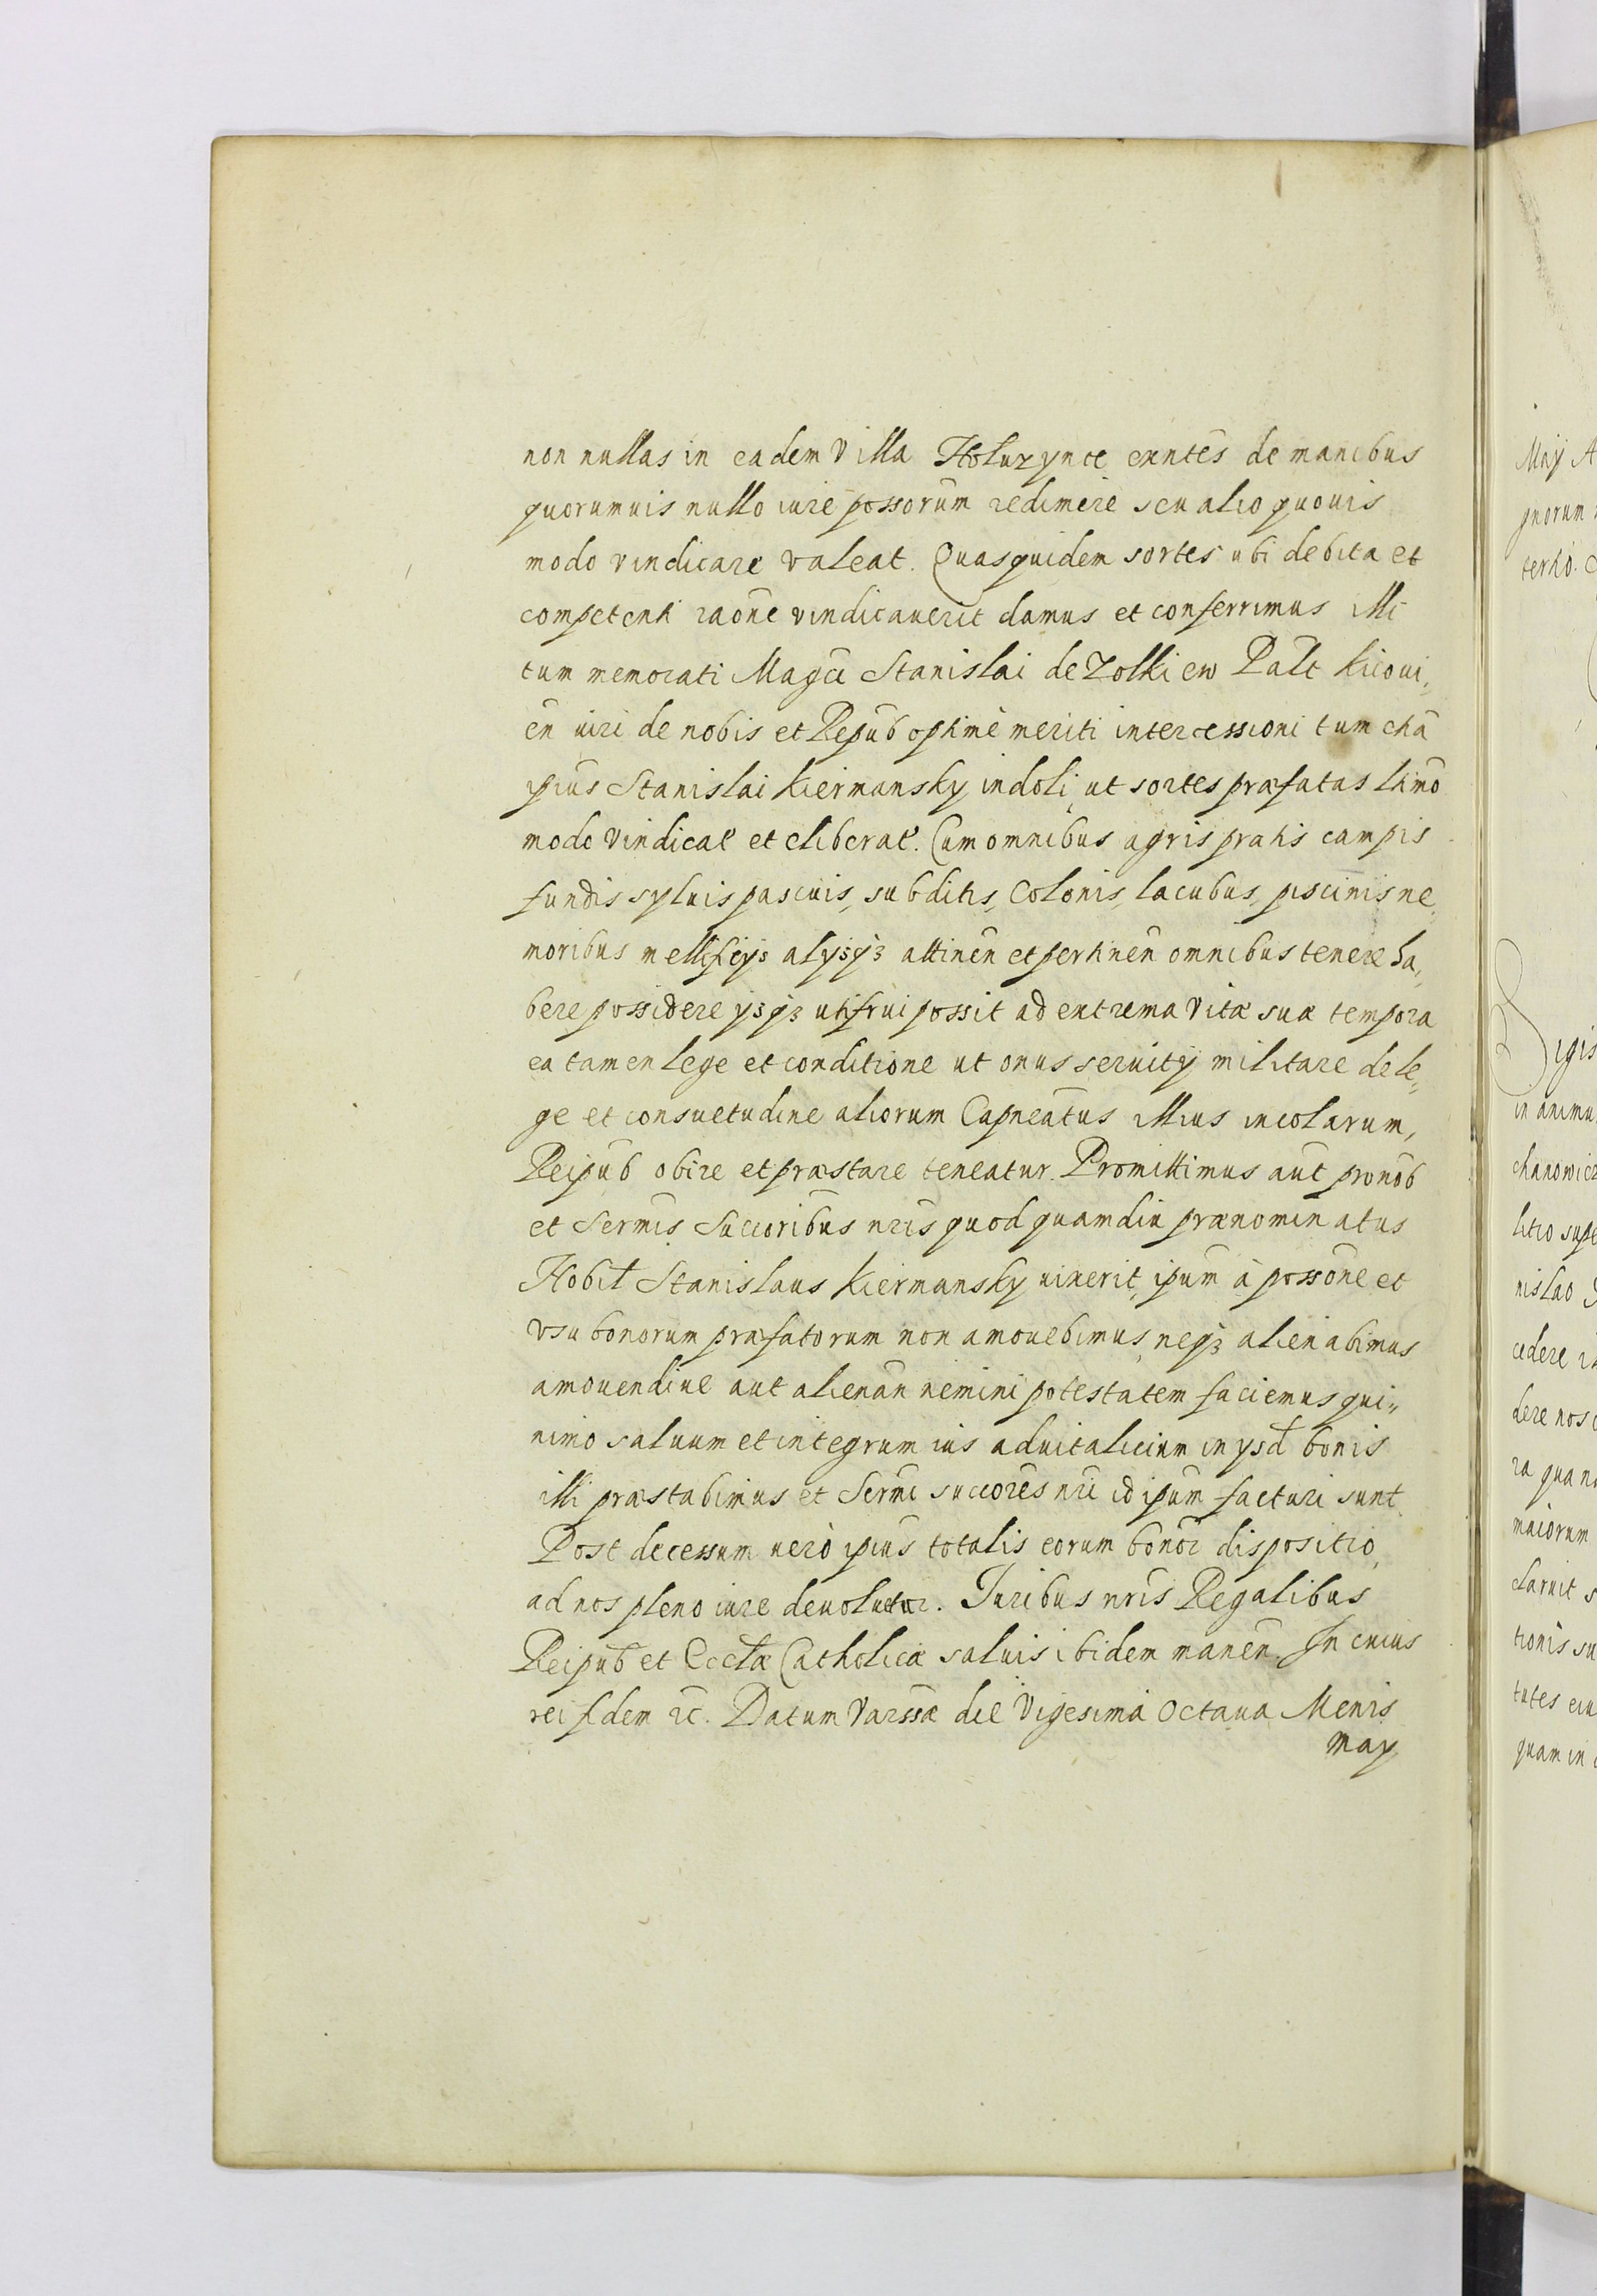 non nullas in eadem Villa Holuzynce exntes de manibus
quorumuis nullo iure possorum redimere seu alio quouis
modo vindicare valeat. Quasquidem sortes ubi debita et
competenti raone vindicauerit damus et conferrimus illi
tum memorati Magci Stanislai de Zolkiew Palt Kiioui„
en viri de nobis et Repub optime meriti intercessioni tum etia
ipius Stanislai Kiermansky indoli, ut sortes præfatas ltimo
modo vindicat et eliberat. Cum omnibus agris pratis campis
fundis syluis pascuis, subditis, Colonis, lacubus, piscinis ne„
moribus mellificys alysqz attinen et pertinen omnibus tenere ha„
bere possidere ysqz utifrui possit ad extrema Vitæ suæ tempora
ea tamen lege et conditione ut onus seruity militare de le„
ge et consuetudine aliorum Capneatus illius incolarum,
Reipub obire et præstare teneatur. Promittimus aut pro nob
et Sermis Succoribus nris quod quamdiu prænominatus
Nobil Stanislaus Kiermansky vixerit, ipum à possone et
vsu bonorum præfatorum non amouebimus, neqz alienabimus
amouendiue aut alienan nemini potestatem faciemus qui„
nimo saluum et integrum ius aduitalicium in ysd bonis
illi præstabimus et Sermi succores nri id ipum facturi sunt.
Post decessum verò ipius totalis eorum bonor dispositio,
ad nos pleno iure deuoluetur. Iuribus nris Regalibus
Reipub et Ecclæ Catholicæ saluis ibidem manen. In cuius
rei fidem &c. Datum Varssæ die Vigesima Octaua Menis
May
May A
quorum
terhio.
Sigis
in animu
chanowicz
litio supe
nislao
cedere
dere nos
ra quan
maiorum
claruit s
tionis su
tutes eiu
quam in